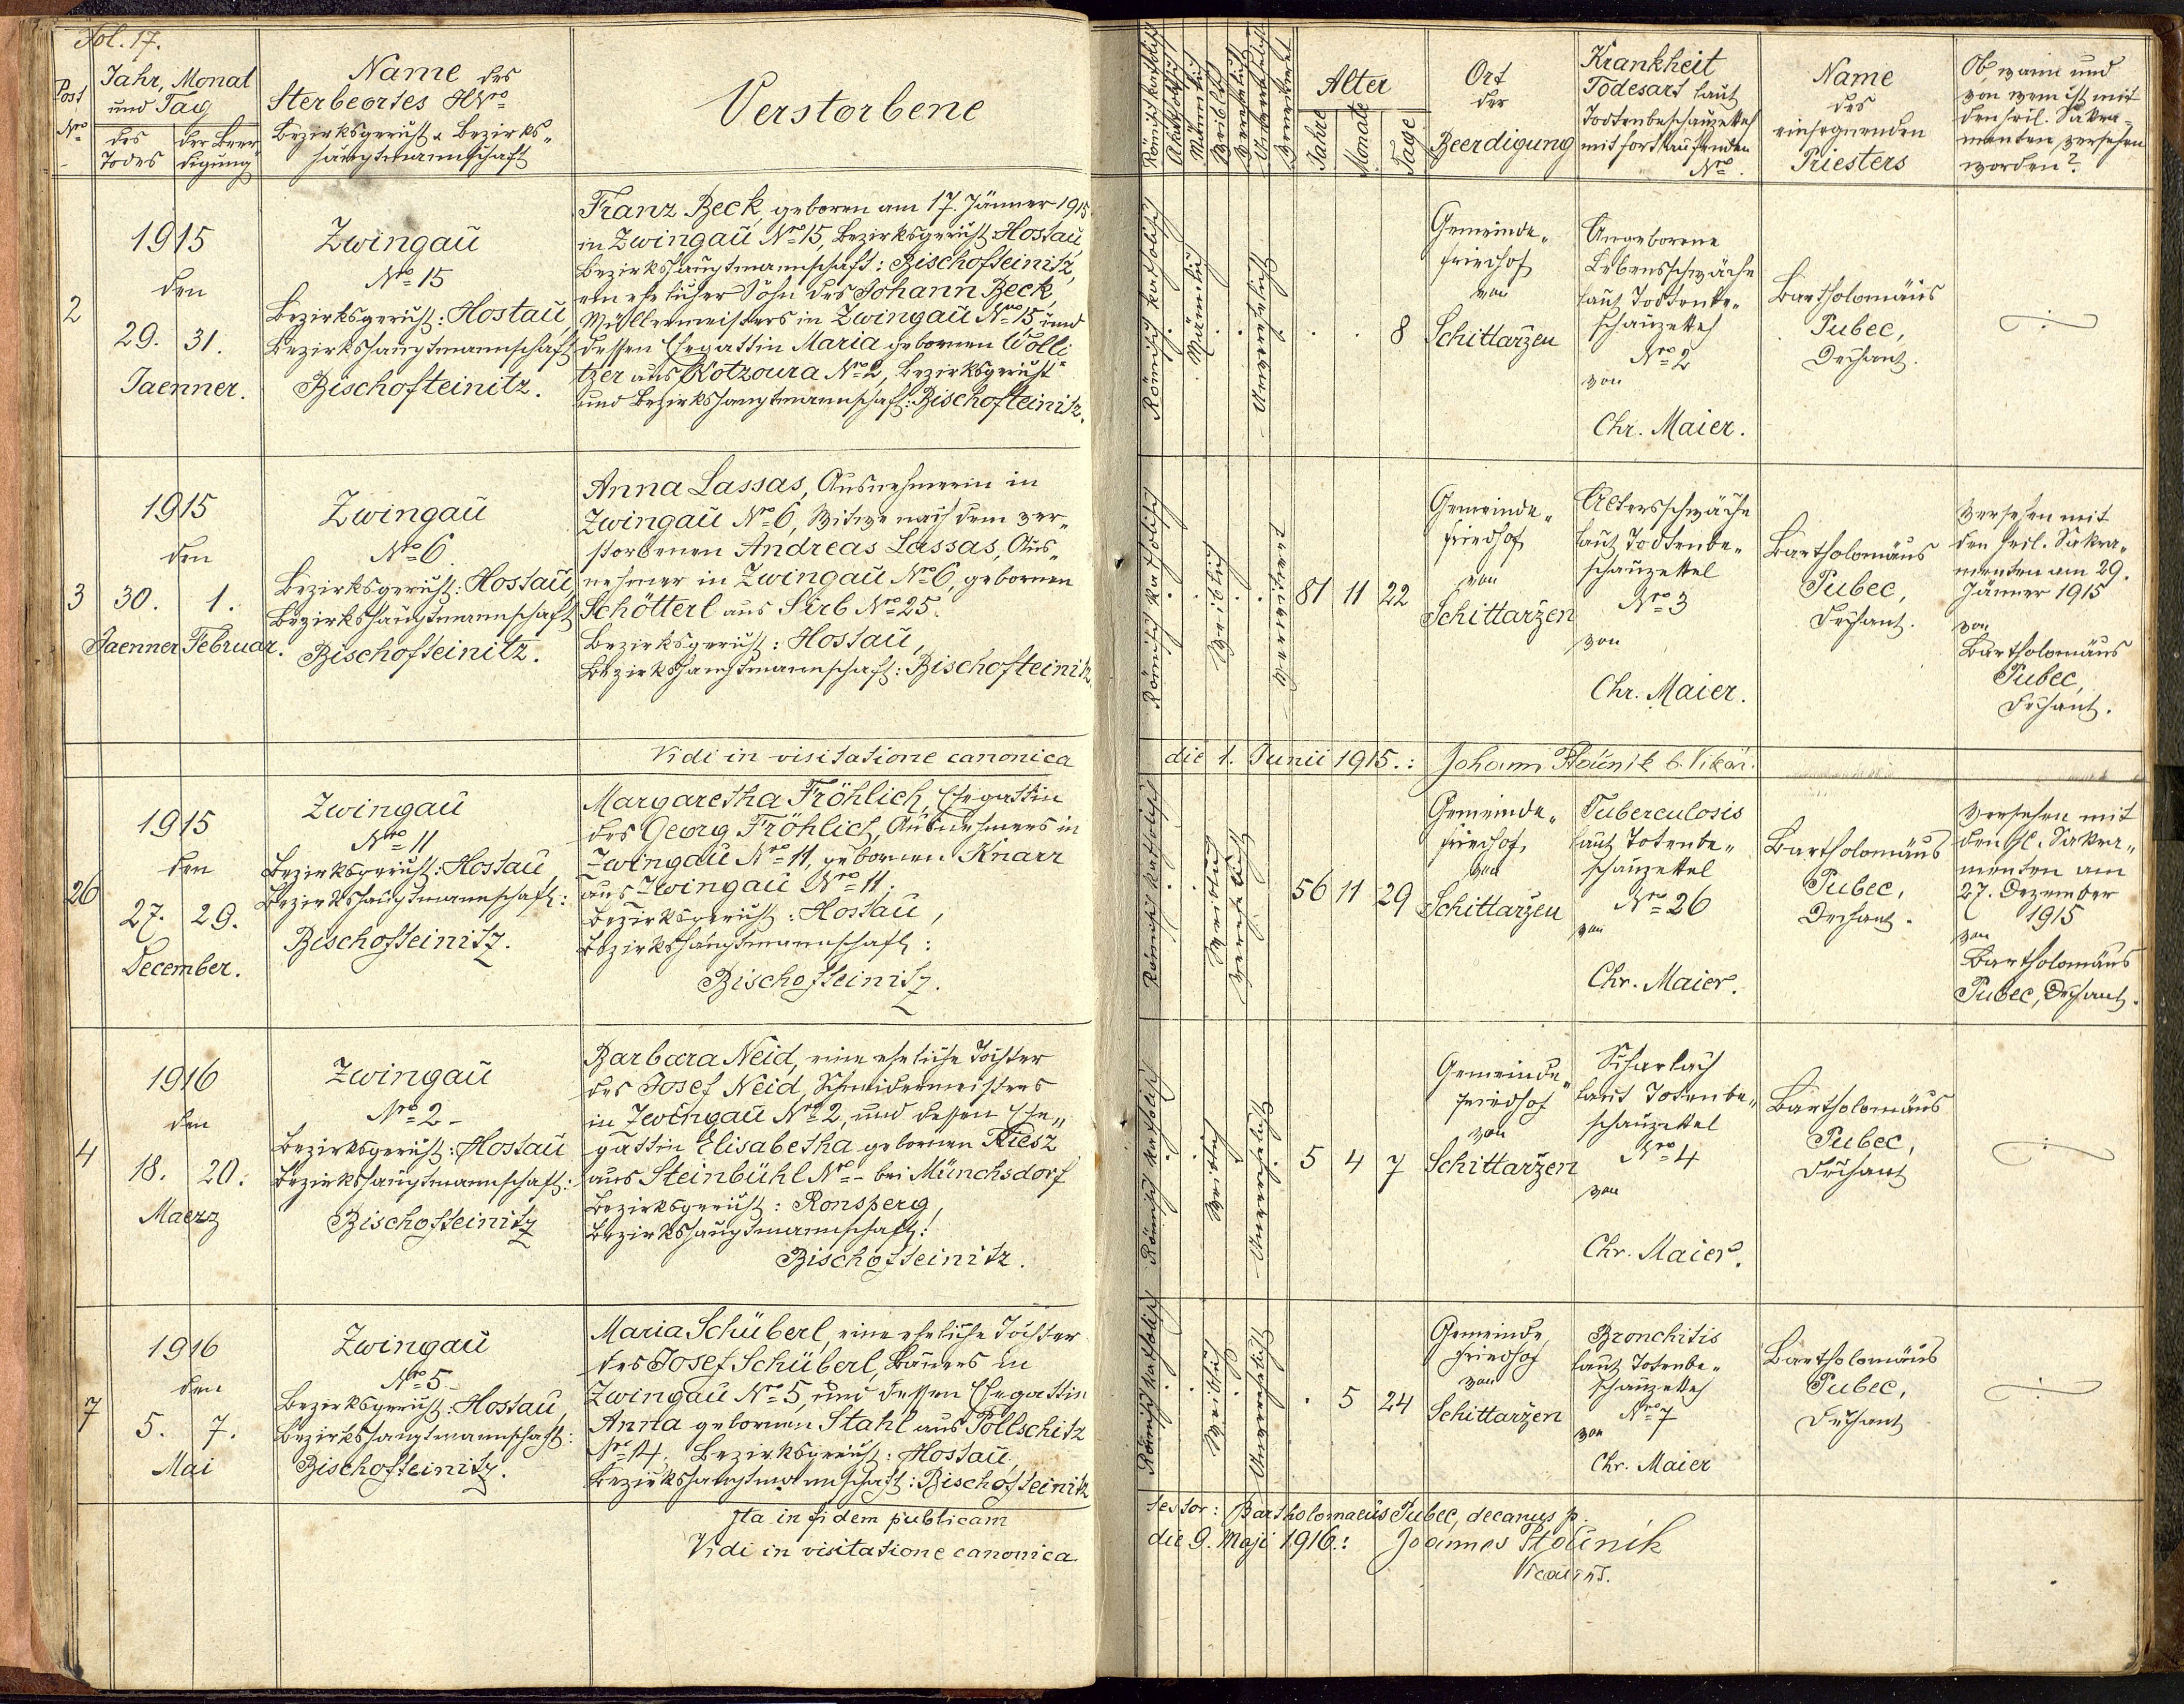 Fol. 17.
Post Nro
Jahr, Monat
und Tag
des Todes
der Beerdigung
Name des
Sterbeortes HNro
Bezirksgericht & Bezirks„
hauptmannschaft
Verstorbene
Römisch katholisch
Akatholisch
Männlich
Weiblich
Verehelicht
Unverehelicht
Verwitwet
Alter
Jahre
Monate
Tage
Ort
der
Beerdigung
Krankheit
Todesart laut
Todtenbeschauzettel
mit fortlaufenden
Nro.
Name
des
einsegnenden
Priesters
Ob, wann und
von wem ist mit
den heil. Sakra„
menten versehen
worden?
2
1915
den
29. 31.
Jaenner.
Zwingau
Nro 15
Bezirksgericht: Hostau,
Bezirkshauptmannschaft
Bischofteinitz.
Franz Beck, geboren am 17. Jänner 1915
in Zwingau Nro 15, Bezirksgericht Hostau,
Bezirkshauptmannschaft: Bischofteinitz,
ein ehelicher Sohn des Johann Beck,
Müllermeisters in Zwingau Nro 15 und
dessen Ehegattin Maria gebornen Wölli„
tzer aus Kotzoura No 2, Bezirksgericht
und Bezirkshauptmannschaft: Bischofteinitz.
Römisch katholisch
Männlich
Unverehelicht
8
Gemeinde„
friedhof
von
Schittarzen
Angeborene
Lebensschwäche
laut Todtenbe„
schauzettel
Nro 2
von
Chr. Maier.
Bartholomäus
Pubec,
Dechant.
3
1915
den
30. 1.
Jaenner Februar.
Zwingau
Nro 6.
Bezirksgericht: Hostau,
Bezirkshauptmannschaft
Bischofteinitz.
Anna Lassas, Ausnehmerin in
Zwingau Nro 6, Witwe nach dem ver„
storbenen Andreas Lassas, Aus„
nehmer in Zwingau Nro 6, gebornen
Schötterl aus Sirb Nro 25.
Bezirksgericht: Hostau,
Bezirkshauptmannschaft: Bischofteinitz.
Römisch katholisch
Weiblich
Verwitwet
81 11 22
Gemeinde„
friedhof
von
Schittarzen
Altersschwäche
laut Todtenbe„
schauzettel
Nro 3
von
Chr. Maier.
Bartholomäus
Pubec,
Dechant.
Versehen mit
den heil. Sakra„
menten am 29.
Jänner 1915
von
Bartholomäus
Pubec,
Dechant.
Vidi in visitatione canonica
die 1. Junii 1915.: Johann b. Vikär.
26
1915
den
27. 29.
December.
Zwingau
Nro 11
Bezirksgericht: Hostau,
Bezirkshauptmannschaft:
Bischofteinitz.
Margaretha Fröhlich, Ehegattin
des Georg Fröhlich, Ausnehmers in
Zwingau Nro 11, gebornen Knarr
aus Zwingau Nro 11.
Bezirksgericht: Hostau,
Bezirkshauptmannschaft:
Bischofteinitz.
Römisch katholisch
Weiblich
Verehelicht
56 11 29
Gemeinde„
friedhof
von
Schittarzen
Tuberculosis
laut Totenbe„
schauzettel
Nro 26
von
Chr. Maier.
Bartholomäus
Pubec,
Dechant.
Versehen mit
den hl. Sakra„
menten am
27. Dezember
1915
von
Bartholomäus
Pubec, Dechant.
4
1916
den
18. 20.
Maerz
Zwingau
Nro 2
Bezirksgericht: Hostau
Bezirkshauptmannschaft:
Bischofteinitz
Barbara Neid, eine eheliche Tochter
des Josef Neid, Schneidermeisters
in Zwingau Nro 2, und dessen Ehe„
gattin Elisabetha gebornen Riesz
aus Steinbühl Nro - bei Münchsdorf
Bezirksgericht: Ronsperg,
Bezirkshauptmannschaft:
Bischofteinitz.
Römisch katholisch
Weiblich
Unverehelicht
5 4 7
Gemeinde„
friedhof
von
Schittarzen
Scharlach
laut Totenbe„
schauzettel
Nro 4
von
Chr. Maier.
Bartholomäus
Pubec,
Dechant
7
1916
den
5. 7.
Mai
Zwingau
Nro 5
Bezirksgericht: Hostau,
Bezirkshauptmannschaft:
Bischofteinitz.
Maria Schüberl, eine eheliche Tochter
des Josef Schüberl, Bauers in
Zwingau Nro 5, und dessen Ehegattin
Anna gebornen Stahl aus Pollschitz
Nro 14. Bezirksgericht: Hostau,
Bezirkshauptmannschaft: Bischofteinitz
Römisch katholisch
Weiblich
Unverehelicht
5 24
Gemeinde
friedhof
von
Schittarzen
Bronchitis
laut Totenbe„
schauzettel
Nro 7
von
Chr. Maier
Bartholomäus
Pubec,
Dechant
Ita in fidem publicam
testor: Bartholomaeus Pubec, decanus p.
Vidi in visitatione canonica
die 9. Maji 1916.: Joannes
Vicarius.